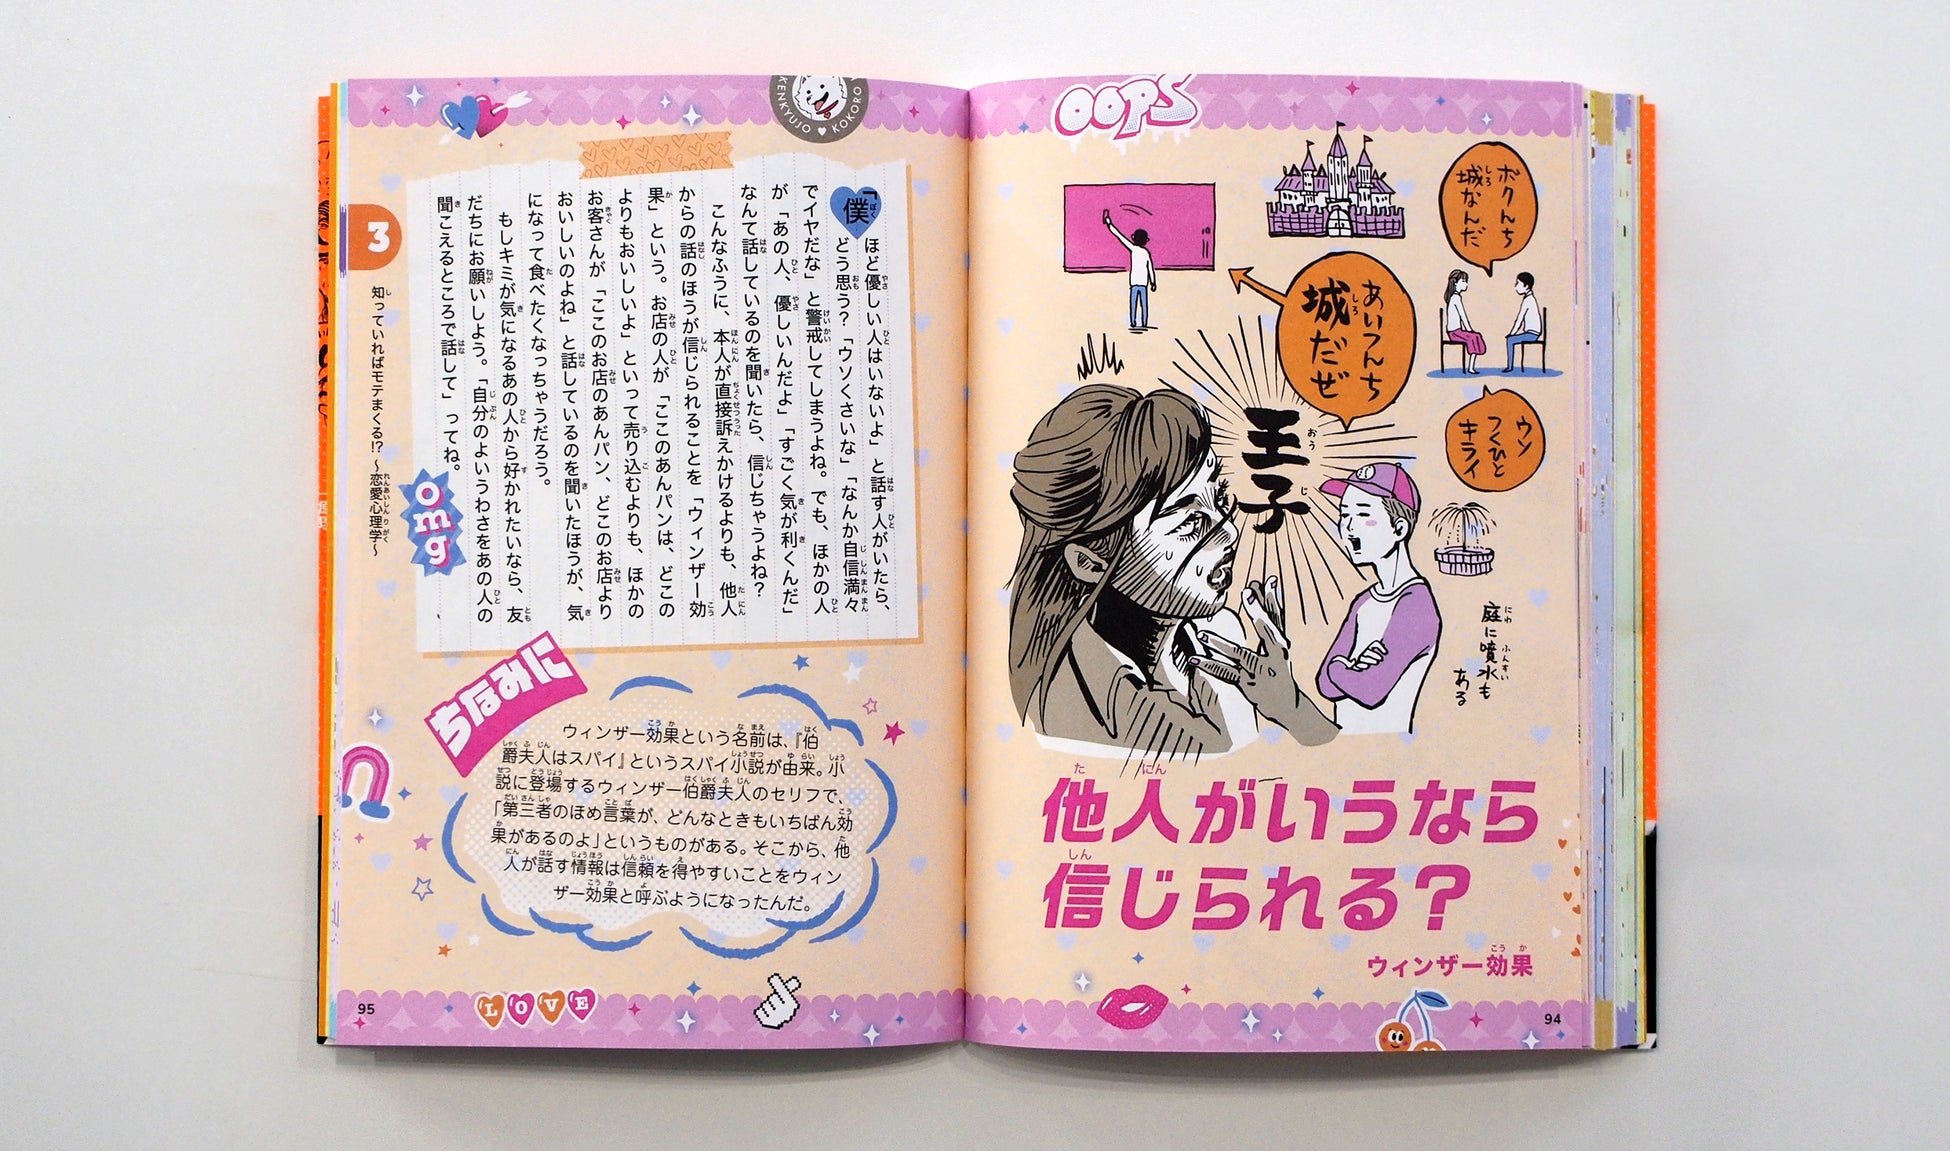 OOPS
ボクんち
城なんだ
ウン
つくひと
キライ
あいつんち
城だぜ
王子
庭に噴水も
ある
他人がいうなら
信じられる？
ウィンザー効果
94
KENKYUJO ♥ KOKORO
「僕ほど優しい人はいないよ」と話す人がいたら、
どう思う？「ウソくさいな」「なんか自信満々
でイヤだな」と警戒してしまうよね。でも、ほかの人
が「あの人、優しいんだよ」「すごく気が利くんだ」
なんて話しているのを聞いたら、信じちゃうよね？
こんなふうに、本人が直接訴えかけるよりも、他人
からの話のほうが信じられることを「ウィンザー効
果」という。お店の人が「ここのあんパンは、どこの
よりもおいしいよ」といって売り込むよりも、ほかの
お客さんが「ここのお店のあんパン、どこのお店より
おいしいのよね」と話しているのを聞いたほうが、気
になって食べたくなっちゃうだろう。
もしキミが気になるあの人から好かれたいなら、友
だちにお願いしよう。「自分のよいうわさをあの人の
聞こえるところで話して」ってね。
omg
3
知っていればモテまくる!? 〜恋愛心理学〜
ちなみに
ウィンザー効果という名前は、『伯
爵夫人はスパイ』というスパイ小説が由来。小
説に登場するウィンザー伯爵夫人のセリフで、
「第三者のほめ言葉が、どんなときもいちばん効
果があるのよ」というものがある。そこから、他
人が話す情報は信頼を得やすいことをウィン
ザー効果と呼ぶようになったんだ。
LOVE
95